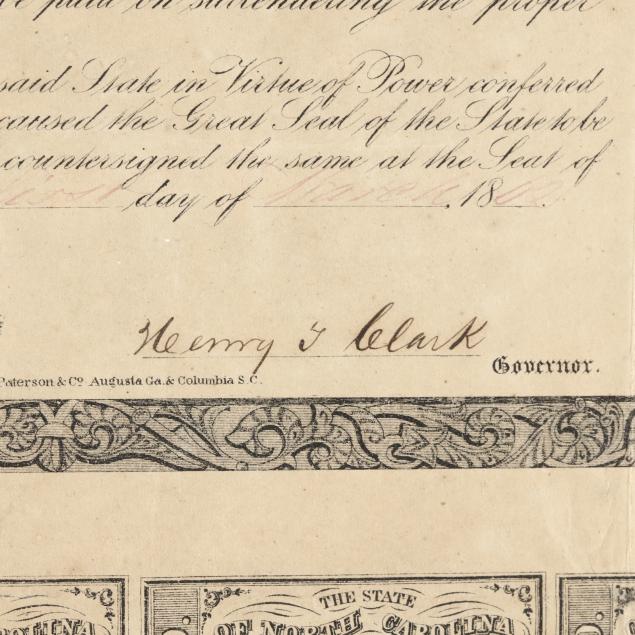 be paid on surrendering the proper
said State in Virtue of Power conferred
caused the Great Seal of the State to be
countersigned the same at the Seat of
first day of March 18
Henry T Clark
Governor.
Paterson & Co. Augusta Ga. & Columbia S.C.
THE STATE
OF NORTH CAROLINA